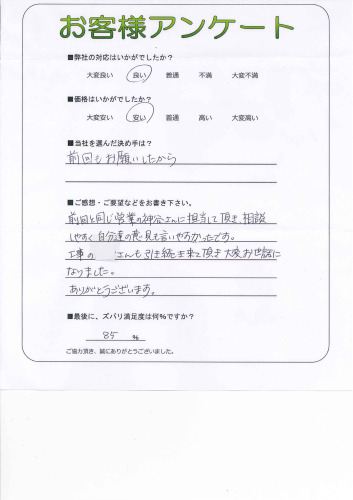 お客様アンケート
■弊社の対応はいかがでしたか?
大変良い 良い 普通 不満 大変不満
■価格はいかがでしたか?
大変安い 安い 普通 高い 大変高い
■当社を選んだ決め手は?
前回もお願いしたから
■ご感想・ご要望などをお書き下さい。
前回と同じ営業の神谷さんに担当して頂き、相談
しやすく自分達の意見も言いやすかったです。
工事の さんも引き続き来て頂き大変お世話に
なりました。
ありがとうございます。
■最後に、ズバリ満足度は何%ですか?
85 %
ご協力頂き、誠にありがとうございました。